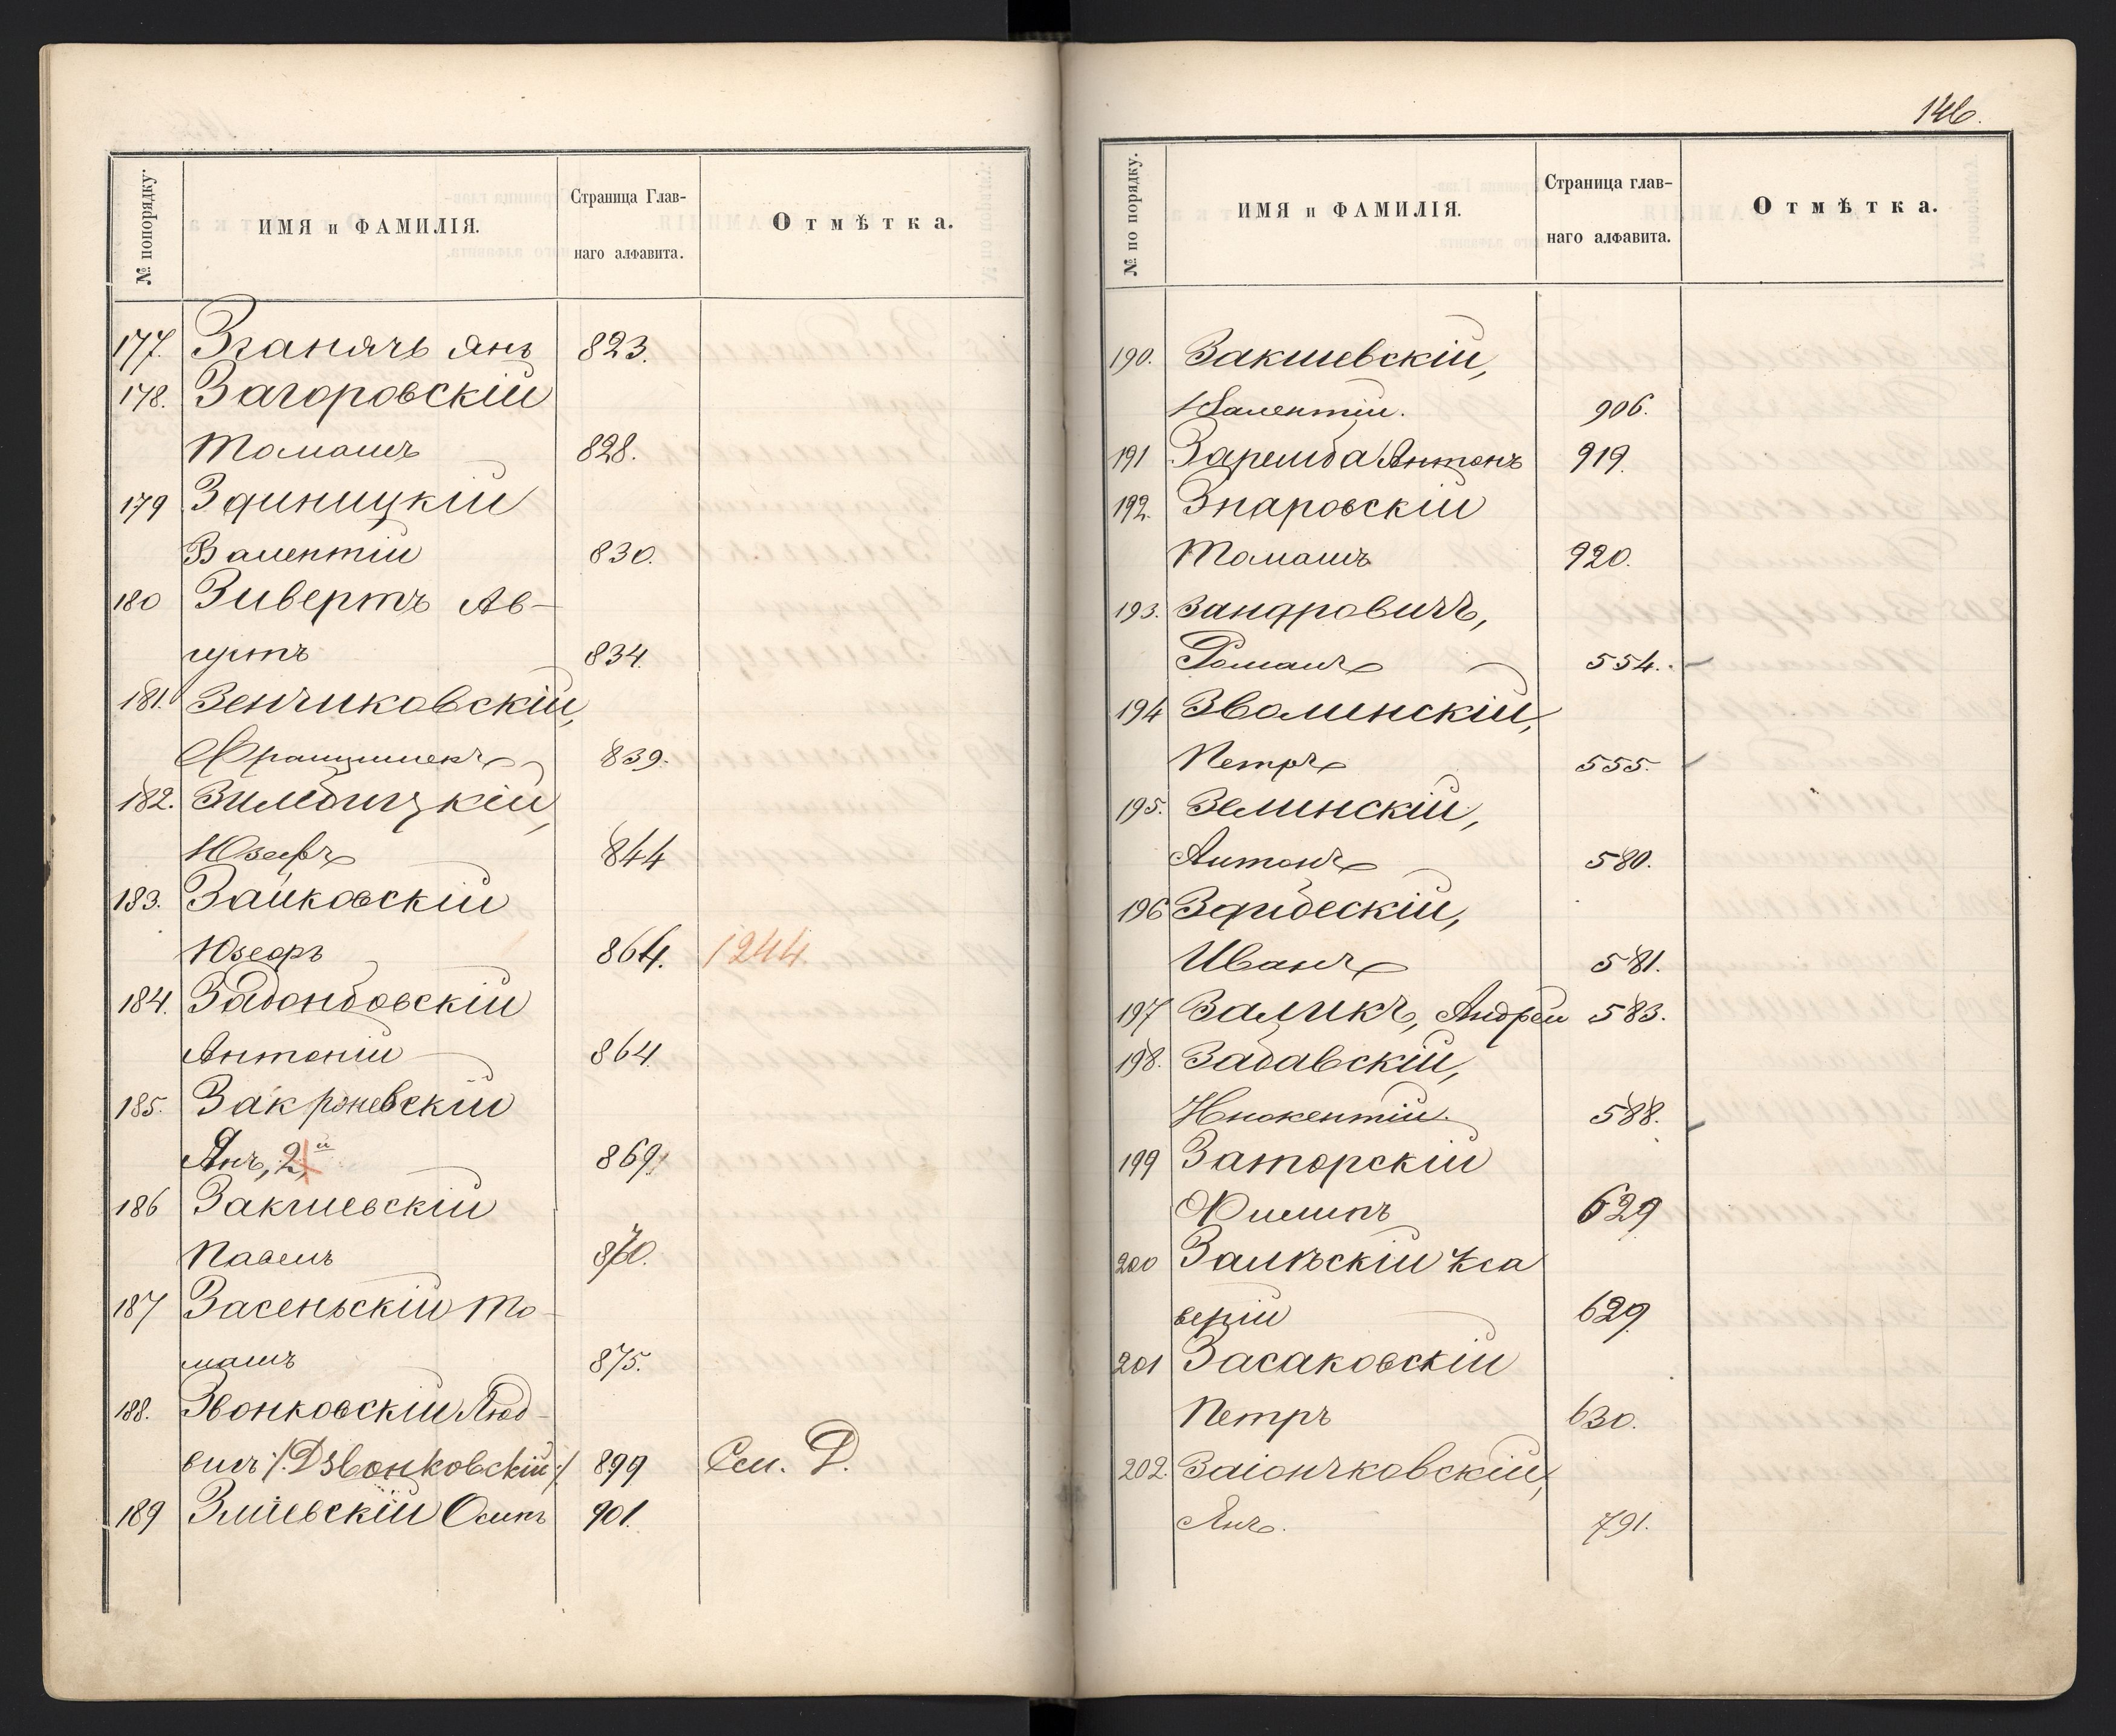 № попорядку.
ИМЯ и ФАМИЛІЯ.
Страница Глав-
наго алфавита.
Отмѣтка.
177. Зганячъ Янъ 823.
178. Загоровскій
Томашъ 828.
179 Здиницкій
Валентій 830.
180 Зивертъ Ав-
густъ 834.
181. Зенчиковскій,
Францишекъ 839.
182. Зимбицкій,
Юзефъ 844
183. Зайковскій
Юзефъ 864. 1244
184. Задонбовскій
Антоній 864.
185. Закржевскій
Янъ, 2й 869.
186 Закгиевскій
Павелъ 870.
187 Засеньскій То-
машъ 875.
188. Звонковскій Люд-
вигъ /:Дзвонковскій:/ 899 См. Д.
189 Зміевскій Осипъ 901.
146.
№ по порядку.
ИМЯ и ФАМИЛІЯ.
Страница глав-
наго алфавита.
Отмѣтка.
190. Закшевскій,
Валентій. 906.
191 Заремба Антонъ 919.
192. Знаровскій
Томашъ 920.
193. Зандровичъ,
Романъ 554.
194 Зволинскій,
Петръ 555.
195. Зелинскій,
Антонъ 580.
196 Здрибескій,
Иванъ 581.
197 Заликъ, Андрей 583.
198. Забавскій,
Инокентій. 588.
199 Заторскій
Филипъ 629
200 Залѣскій Кса
верій 629.
201 Засаковскій
Петръ 630.
202. Заіончковскій,
Янъ. 791.